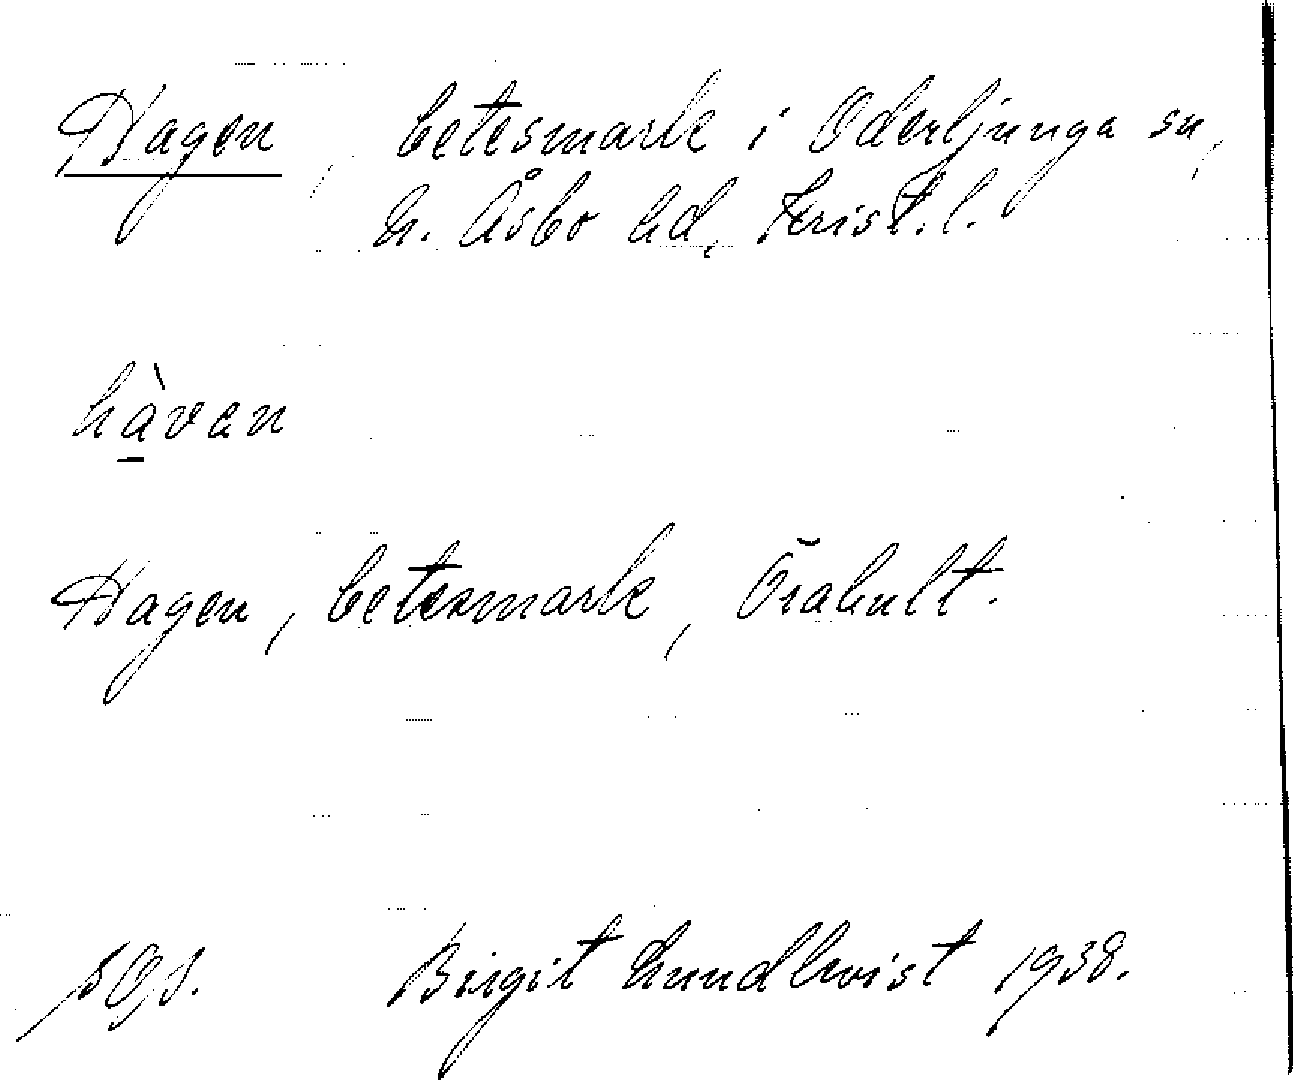 Hagen, betesmark i Oderljunga sn,
n. Åsbo hd, Krist. l.
hàvan
Hagen, betesmark, Örahult.
Birgit Lundkvist 1938.